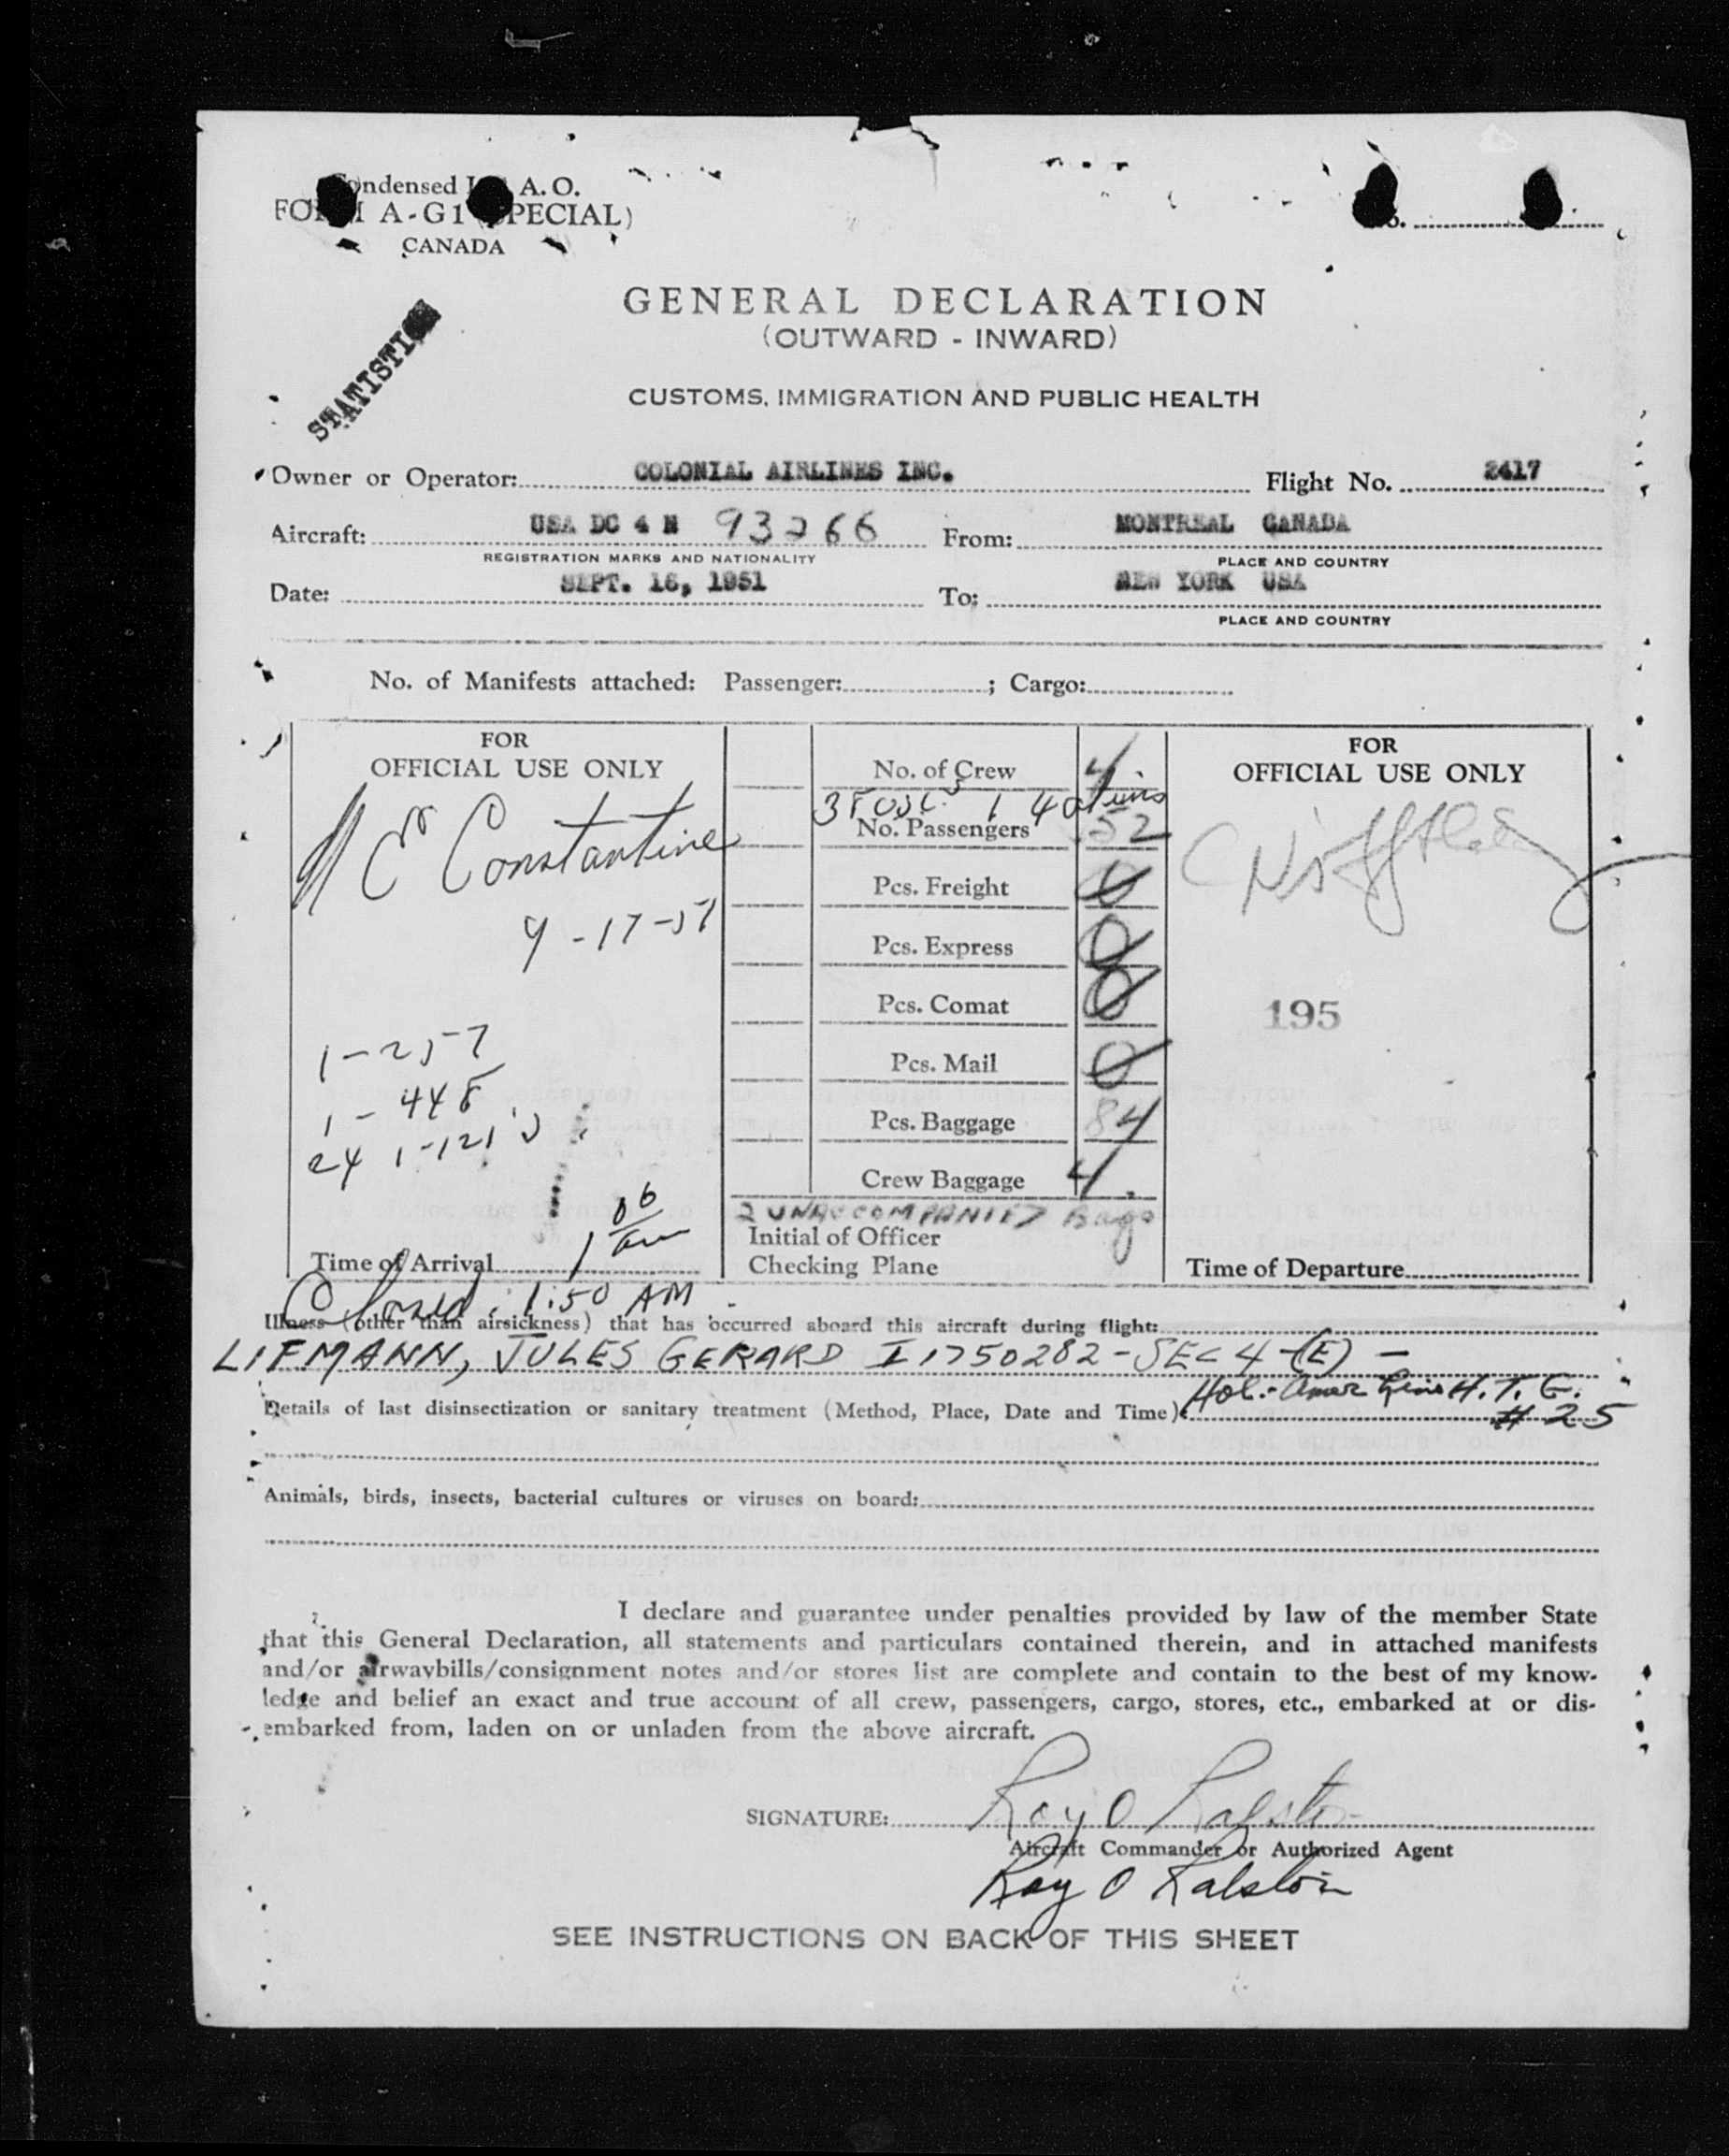 Condensed I. A. O.
FORM A-G1 (SPECIAL)
CANADA
STATISTICS
GENERAL DECLARATION
(OUTWARD - INWARD)
CUSTOMS, IMMIGRATION AND PUBLIC HEALTH
Owner or Operator: COLONIAL AIRLINES INC. Flight No. 2417
Aircraft: USA DC 4 N 93266 From: MONTREAL CANADA
REGISTRATION MARKS AND NATIONALITY PLACE AND COUNTRY
Date: SEPT. 16, 1951 To: NEW YORK USA
PLACE AND COUNTRY
No. of Manifests attached: Passenger: ; Cargo:
FOR
OFFICIAL USE ONLY
Constantine
9-17-51
1-257
1-448
24 1-121's
1 06 am
Time of Arrival
Closed. 1:50 AM
No. of Crew 4
No. Passengers 52
Pcs. Freight 0
Pcs. Express 0
Pcs. Comat 0
Pcs. Mail 0
Pcs. Baggage 84
Crew Baggage 4
2 UNACCOMPANIED Bags
Initial of Officer
Checking Plane
FOR
OFFICIAL USE ONLY
195
Time of Departure
Illness (other than airsickness) that has occurred aboard this aircraft during flight:
LIFMANN, JULES GERARD I 1750282 - SEC 4-(E) -
Hol.-Amer Line H. T. E.
Details of last disinsectization or sanitary treatment (Method, Place, Date and Time): # 25
Animals, birds, insects, bacterial cultures or viruses on board:
I declare and guarantee under penalties provided by law of the member State
that this General Declaration, all statements and particulars contained therein, and in attached manifests
and/or airwaybills/consignment notes and/or stores list are complete and contain to the best of my know-
ledge and belief an exact and true account of all crew, passengers, cargo, stores, etc., embarked at or dis-
embarked from, laden on or unladen from the above aircraft.
SIGNATURE: Roy O Ralston
Aircraft Commander or Authorized Agent
Roy O Ralston
SEE INSTRUCTIONS ON BACK OF THIS SHEET